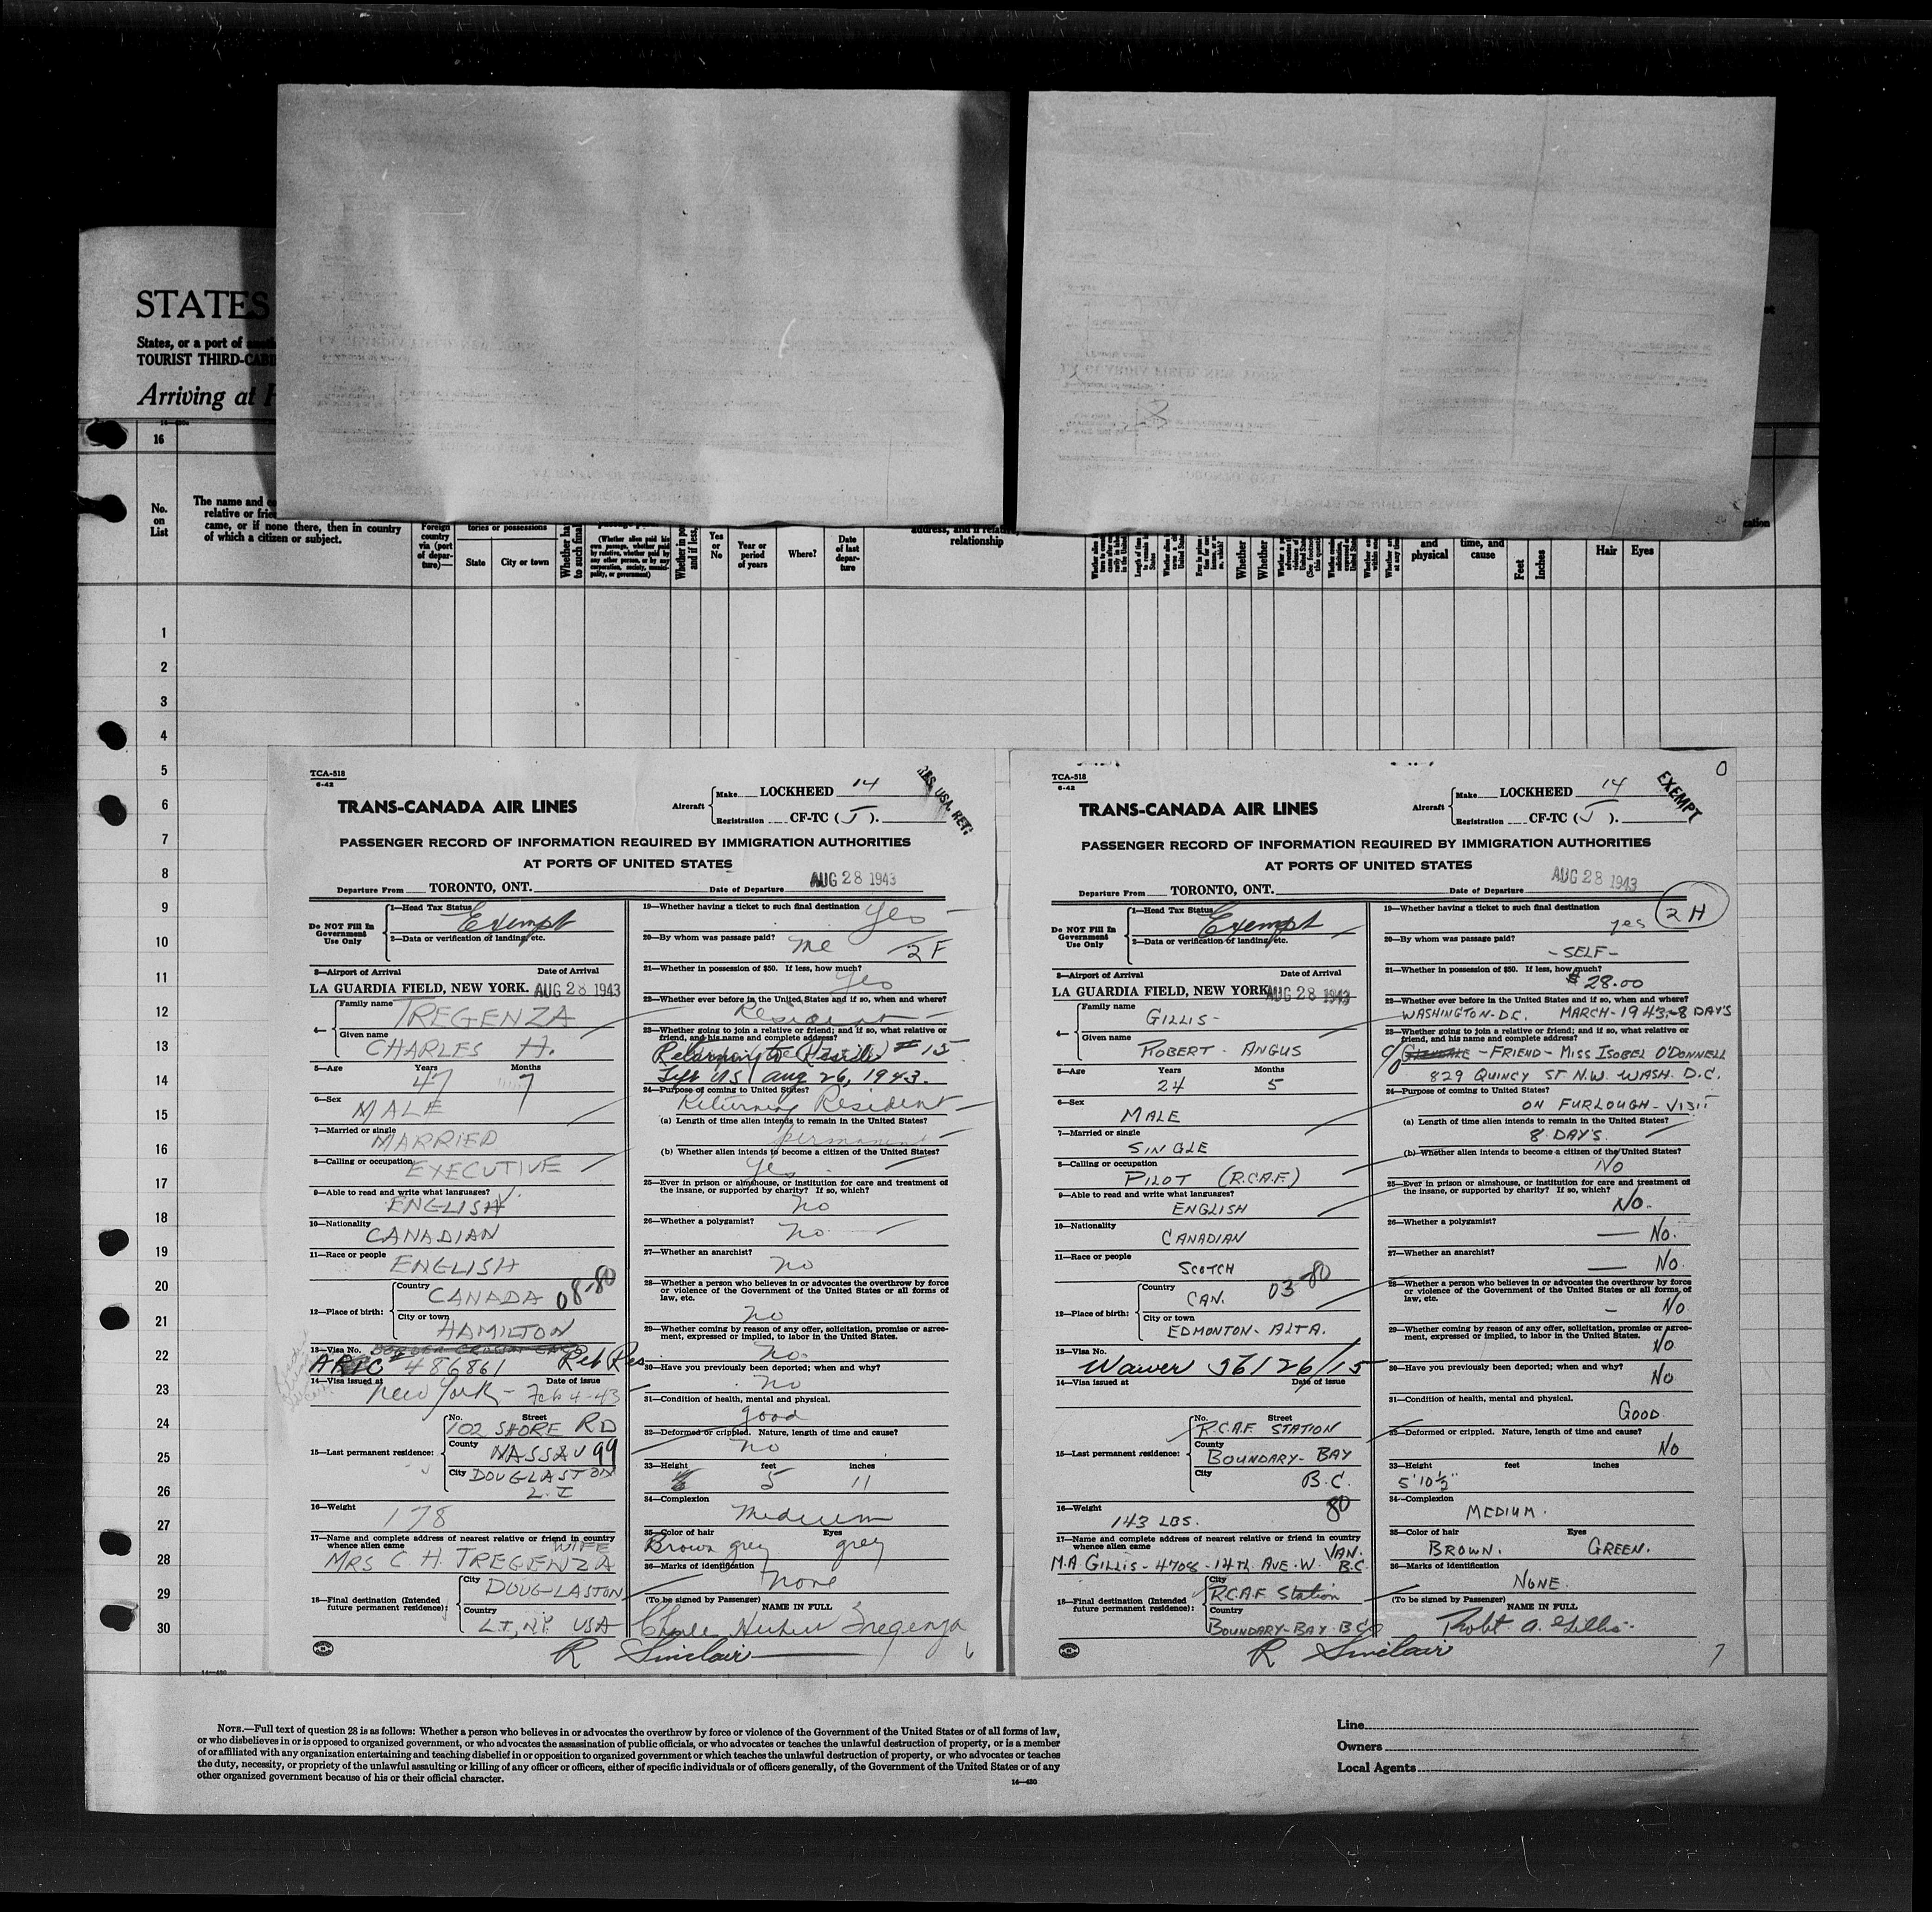 STATES
States, or a port of
TOURIST THIRD-CABIN
Arriving at
16
No. on List
The name and
relative or
came, or if none there, then in country
of which a citizen or subject.
Foreign country via (port of departure)—
State
City or town
Yes or No
Year or period of years
Where?
Date of last departure
relationship
and physical
time, and cause
Feet
Inches
Hair
Eyes
1
2
3
4
5
6
7
8
9
10
11
12
13
14
15
16
17
18
19
20
21
22
23
24
25
26
27
28
29
30
TCA-518
6-42
TRANS-CANADA AIR LINES
Aircraft
Make LOCKHEED 14
Registration CF-TC (J).
USA. RET.
PASSENGER RECORD OF INFORMATION REQUIRED BY IMMIGRATION AUTHORITIES
AT PORTS OF UNITED STATES
Departure From TORONTO, ONT. Date of Departure AUG 28 1943
Do NOT Fill In Government Use Only
1—Head Tax Status Exempt
2—Data or verification of landing, etc.
3—Airport of Arrival Date of Arrival
LA GUARDIA FIELD, NEW YORK. AUG 28 1943
4—
Family name TREGENZA
Given name CHARLES H.
5—Age Years 47 Months 7
6—Sex MALE
7—Married or single MARRIED
8—Calling or occupation EXECUTIVE
9—Able to read and write what languages? ENGLISH
10—Nationality CANADIAN
11—Race or people ENGLISH
12—Place of birth:
Country CANADA 08-80
City or town HAMILTON
13—Visa No. BORDER CROSSING CARD
ARIC # 486861 Ret Res
14—Visa issued at New York - Date of issue Feb 4-43
15—Last permanent residence:
No. Street 102 SHORE RD
County NASSAU 99
City DOUGLASTON
L.I
16—Weight 178
17—Name and complete address of nearest relative or friend in country
whence alien came WIFE
MRS C. H. TREGENZA
18—Final destination (Intended
future permanent residence):
City DOUGLASTON
Country L.I, N.Y. USA
19—Whether having a ticket to such final destination Yes
20—By whom was passage paid? Me 2F
21—Whether in possession of $50. If less, how much? Yes
22—Whether ever before in the United States and if so, when and where?
Resident
23—Whether going to join a relative or friend; and if so, what relative or
friend, and his name and complete address?
Returning to (Reside) #15
Left US Aug 26, 1943.
24—Purpose of coming to United States?
Returning Resident
(a) Length of time alien intends to remain in the United States?
permanent
(b) Whether alien intends to become a citizen of the United States?
Yes
25—Ever in prison or almshouse, or institution for care and treatment of
the insane, or supported by charity? If so, which?
No
26—Whether a polygamist? No
27—Whether an anarchist? No
28—Whether a person who believes in or advocates the overthrow by force
or violence of the Government of the United States or all forms of
law, etc. No
29—Whether coming by reason of any offer, solicitation, promise or agree-
ment, expressed or implied, to labor in the United States.
No
30—Have you previously been deported; when and why?
No
31—Condition of health, mental and physical.
good
32—Deformed or crippled. Nature, length of time and cause?
No
33—Height feet 5 inches 11
34—Complexion Medium
35—Color of hair Brown grey Eyes grey
36—Marks of identification None
(To be signed by Passenger) NAME IN FULL
Charles Hubert Tregenza
R Sinclair
6
TCA-518
6-42
TRANS-CANADA AIR LINES
Aircraft
Make LOCKHEED 14
Registration CF-TC (J).
EXEMPT
0
PASSENGER RECORD OF INFORMATION REQUIRED BY IMMIGRATION AUTHORITIES
AT PORTS OF UNITED STATES
Departure From TORONTO, ONT. Date of Departure AUG 28 1943
Do NOT Fill In Government Use Only
1—Head Tax Status Exempt
2—Data or verification of landing, etc.
3—Airport of Arrival Date of Arrival
LA GUARDIA FIELD, NEW YORK. AUG 28 1943
4—
Family name GILLIS-
Given name ROBERT - ANGUS
5—Age Years 24 Months 5
6—Sex MALE
7—Married or single SINGLE
8—Calling or occupation PILOT (R.C.A.F.)
9—Able to read and write what languages? ENGLISH
10—Nationality CANADIAN
11—Race or people SCOTCH
12—Place of birth:
Country CAN. 03-80
City or town EDMONTON- ALTA.
13—Visa No. Waiver 56126/15
14—Visa issued at Date of issue
15—Last permanent residence:
No. Street R.C.A.F. STATION
County BOUNDARY- BAY
City B.C.
16—Weight 143 LBS. 80
17—Name and complete address of nearest relative or friend in country
whence alien came
M.A GILLIS - 4708 - 14TH AVE. W. VAN. B.C.
18—Final destination (Intended
future permanent residence):
City R.C.A.F Station
Country BOUNDARY-BAY B.C.
19—Whether having a ticket to such final destination yes 2H
20—By whom was passage paid? -SELF-
21—Whether in possession of $50. If less, how much? $28.00
22—Whether ever before in the United States and if so, when and where?
WASHINGTON-D.C. MARCH-1943-8 DAYS
23—Whether going to join a relative or friend; and if so, what relative or
friend, and his name and complete address?
C/O - FRIEND - MISS ISOBEL O'DONNELL
829 QUINCY ST. N.W. WASH. D.C.
24—Purpose of coming to United States?
ON FURLOUGH - VISIT
(a) Length of time alien intends to remain in the United States?
8 DAY'S.
(b) Whether alien intends to become a citizen of the United States?
No
25—Ever in prison or almshouse, or institution for care and treatment of
the insane, or supported by charity? If so, which?
No.
26—Whether a polygamist? — No.
27—Whether an anarchist? — No.
28—Whether a person who believes in or advocates the overthrow by force
or violence of the Government of the United States or all forms of
law, etc. — No
29—Whether coming by reason of any offer, solicitation, promise or agree-
ment, expressed or implied, to labor in the United States. No
30—Have you previously been deported; when and why? No
31—Condition of health, mental and physical.
GOOD.
32—Deformed or crippled. Nature, length of time and cause?
No
33—Height feet inches
5'10½"
34—Complexion MEDIUM.
35—Color of hair BROWN. Eyes GREEN.
36—Marks of identification NONE.
(To be signed by Passenger) NAME IN FULL
Robt A. Gillis.
R Sinclair
7
14—430
NOTE.—Full text of question 28 is as follows: Whether a person who believes in or advocates the overthrow by force or violence of the Government of the United States or of all forms of law,
or who disbelieves in or is opposed to organized government, or who advocates the assassination of public officials, or who advocates or teaches the unlawful destruction of property, or is a member
of or affiliated with any organization entertaining and teaching disbelief in or opposition to organized government or which teaches the unlawful destruction of property, or who advocates or teaches
the duty, necessity, or propriety of the unlawful assaulting or killing of any officer or officers, either of specific individuals or of officers generally, of the Government of the United States or of any
other organized government because of his or their official character.
14—430
Line
Owners
Local Agents